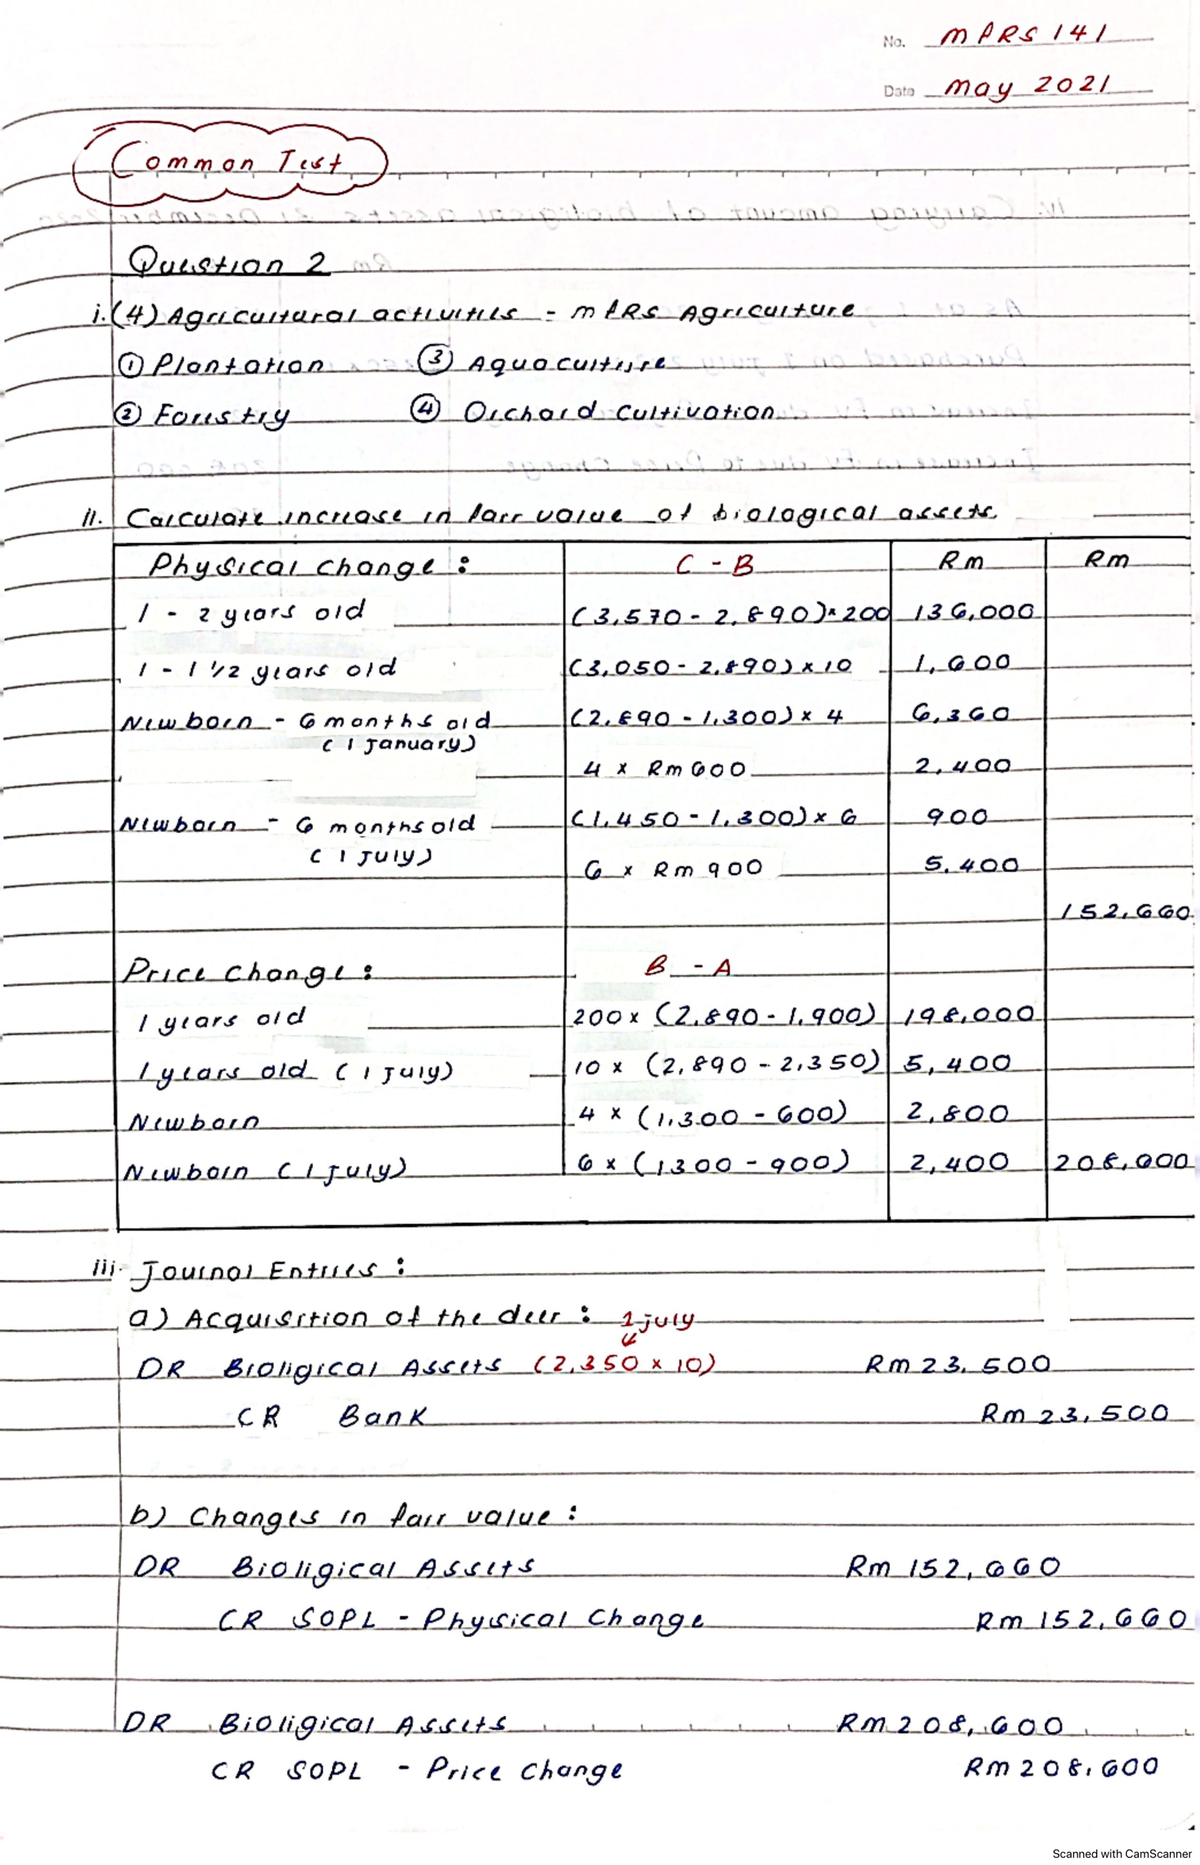 No. MPRS 141
Date May 2021
Common Test
Question 2
i. (4) Agricultural activities - MPRS Agriculture
① Plantation ③ Aquaculture
② Forestry ④ Orchard Cultivation
ii. Calculate increase in fair value of biological assets
Physical change : C - B Rm Rm
1 - 2 years old (3,570 - 2,890) × 200 136,000
1 - 1 1/2 years old (3,050 - 2,890) × 10 1,600
Newborn - 6 months old (2,890 - 1,300) × 4 6,360
(1 January)
4 × Rm 600 2,400
Newborn - 6 months old (1,450 - 1,300) × 6 900
(1 July)
6 × Rm 900 5,400
152,660
Price Change : B - A
1 years old 200 × (2,890 - 1,900) 198,000
1 years old (1 July) 10 × (2,890 - 2,350) 5,400
Newborn 4 × (1,300 - 600) 2,800
Newborn (1 July) 6 × (1300 - 900) 2,400 208,600
iii. Journal Entries :
a) Acquisition of the deer : 1 July
DR Bioligical Assets (2,350 × 10) Rm 23,500
CR Bank Rm 23,500
b) Changes in fair value :
DR Bioligical Assets Rm 152,660
CR SOPL - Physical Change Rm 152,660
DR Bioligical Assets Rm 208,600
CR SOPL - Price Change Rm 208,600
Scanned with CamScanner